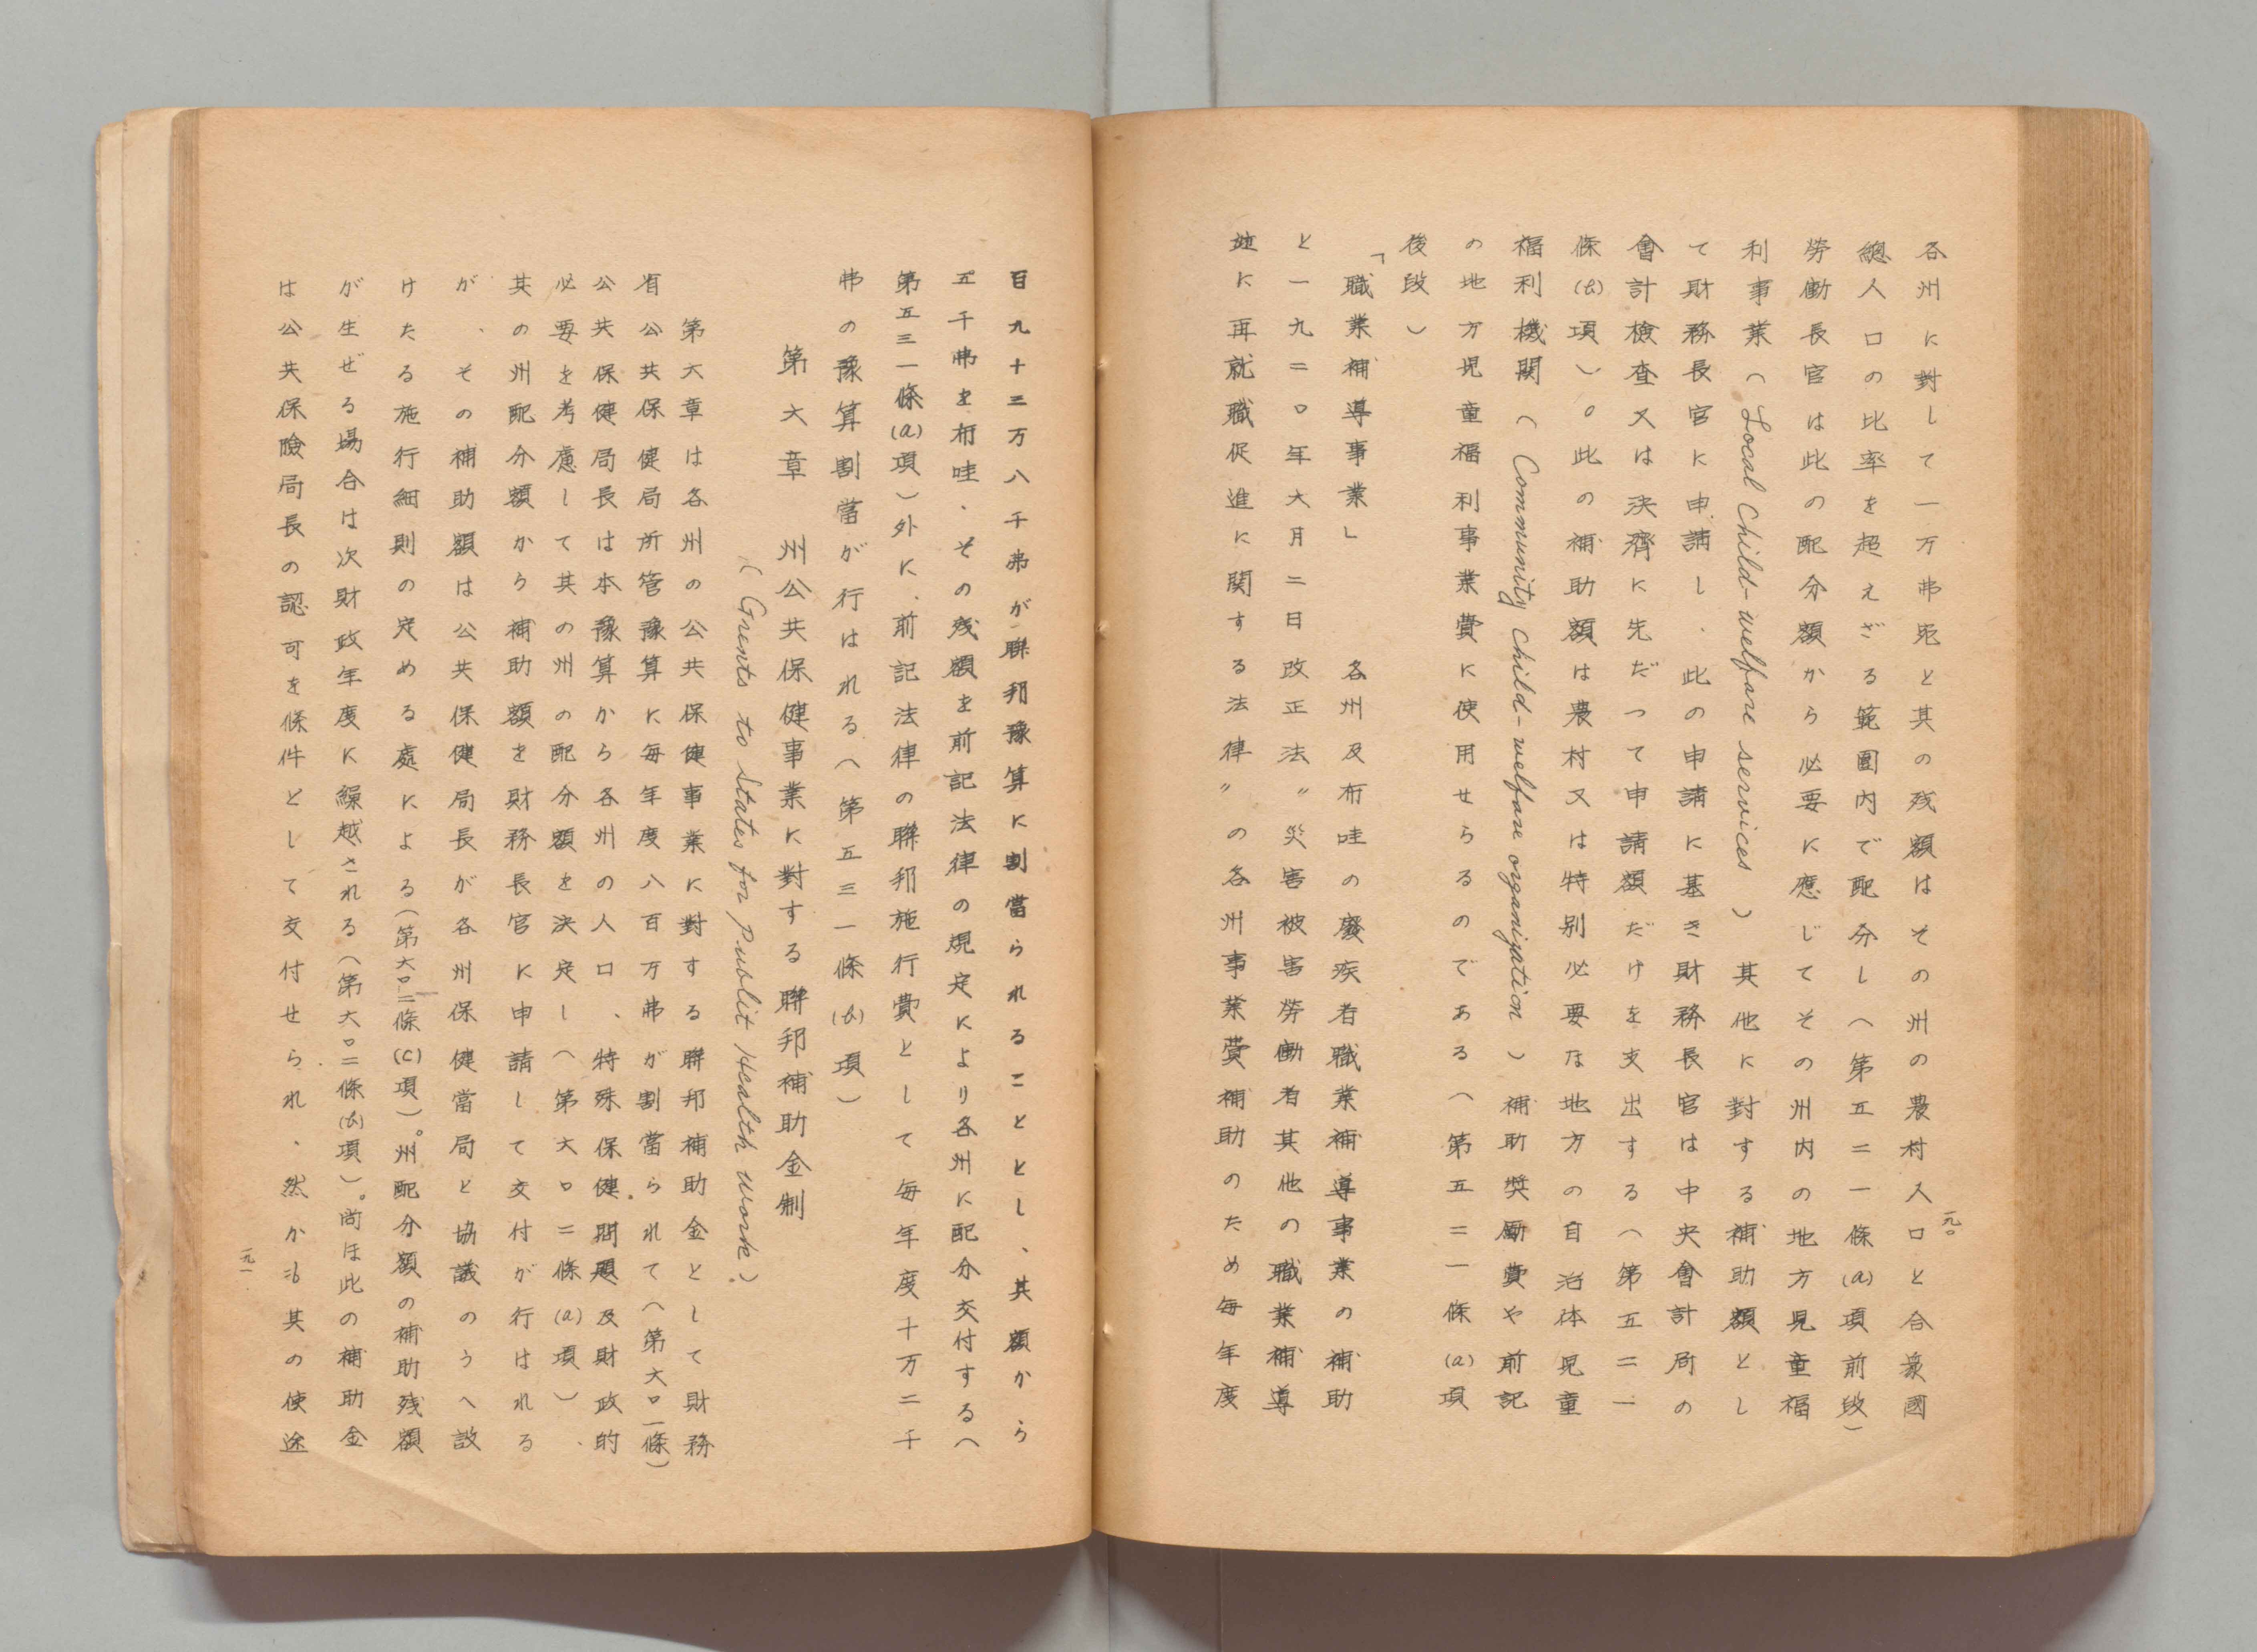 各州に對して一万弗宛と其の残額はその州の農村人口と合衆國
總人口の比率を超えざる範圍内で配分し（第五二一條(a)項前段）
勞働長官は此の配分額から必要に應じてその州内の地方児童福
利事業（Local Child-welfare services）其他に對する補助額とし
て財務長官に申請し、此の申請に基き財務長官は中央會計局の
會計檢査又は決濟に先だつて申請額だけを支出する（第五二一
條(b)項）。此の補助額は農村又は特別必要な地方の自治体児童
福利機関（Community child-welfare organization）補助奬勵費や前記
の地方児童福利事業費に使用せらるのである（第五二一條(a)項
後段）
「職業補導事業」　各州及布哇の廢疾者職業補導事業の補助
と一九二〇年六月二日改正法〃災害被害勞働者其他の職業補導
竝に再就職促進に関する法律〃の各州事業費補助のため毎年度
一九〇
百九十三万八千弗が聯邦豫算に割當られることとし、其額から
五千弗を布哇、その残額を前記法律の規定により各州に配分交付する（
第五三一條(a)項）外に、前記法律の聯邦施行費として毎年度十万二千
弗の豫算割當が行はれる（第五三一條(b)項）
第六章　州公共保健事業に對する聯邦補助金制
（Grents to States for Publit Health work）
第六章は各州の公共保健事業に對する聯邦補助金として財務
省公共保健局所管豫算に毎年度八百万弗が割當られて（第六〇一條）
公共保健局長は本豫算から各州の人口、特殊保健問題及財政的
必要を考慮して其の州の配分額を決定し（第六〇二條(a)項）、
其の州配分額から補助額を財務長官に申請して交付が行はれる
が、その補助額は公共保健局長が各州保健當局と協議のうへ設
けたる施行細則の定める處による（第六〇二條(c)項）。州配分額の補助残額
が生ぜる場合は次財政年度に繰越される（第六〇二條(b)項）。尚ほ此の補助金
は公共保險局長の認可を條件として交付せられ、然かも其の使途
一九一